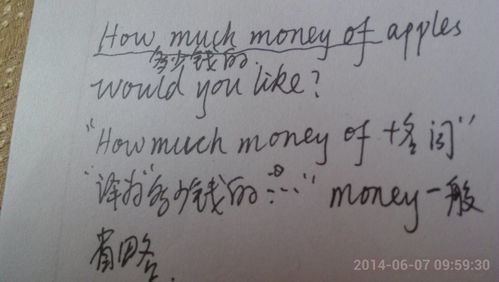 How much money of apples
多少钱的
would you like?
"How much money of +名词"
"译为"多少钱的……" money一般
省略.
2014-06-07 09:59:30